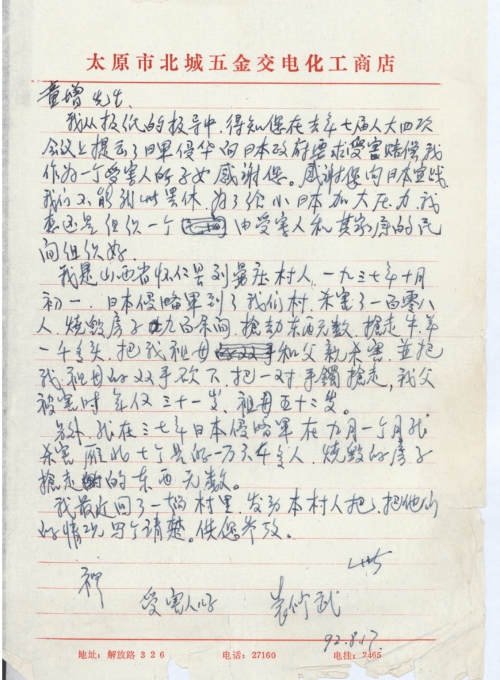 太原市北城五金交电化工商店
童增先生.
我从报纸的报导中,得知您在去年七届人大四次
会议上提出了日军侵华向日本政府要求受害赔偿.我
作为一个受害人的子女感谢您。感谢您向日本宣战
我们不能到此罢休.为了给小日本加大压力.我
想还是组织一个由受害人和其家属的民
间组织好.
我是山西省怀仁县刘晏庄村人.一九三七年十月
初一.日本侵略军到了我们村.杀害了一百零八
人.烧毁房子九百余间.抢劫东西无数.抢走牛羊
一千多头.把我祖母和父亲杀害.並把
我祖母的双手砍下.把一对手镯抢走,我父
被害时年仅三十一岁.祖母五十三岁。
另外.我在三七年日本侵略军在九月一个月就
杀害雁北七个县的一万六千多人.烧毁的房子
抢走的东西无数。
我最近回了一趟村里.发动本村人把.把他们
的情况写个清楚。供您参改.
此
祝
受害人子
92.8.17.
地址:解放路326 电话:27160 电挂:2465